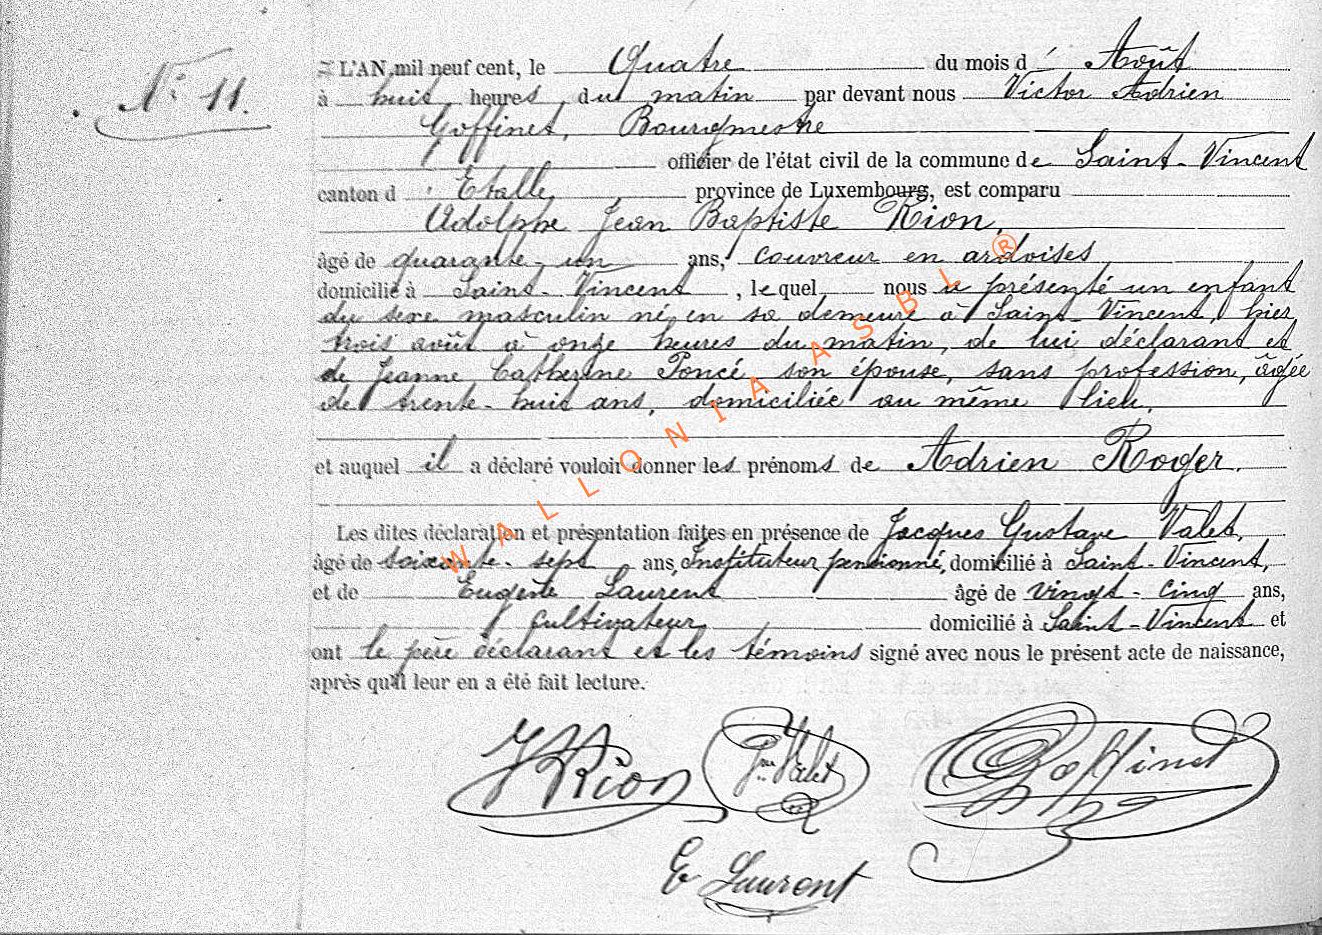 N° 11.
L'AN mil neuf cent, le Quatre du mois d' Août
à huit heures du matin par devant nous Victor Adrien
Goffinet, Bourgmestre
officier de l'état civil de la commune de Saint-Vincent
canton d' Etalle, province de Luxembourg, est comparu
Adolphe Jean Baptiste Rion,
âgé de quarante-un ans, couvreur en ardoises
domicilié à Saint-Vincent, lequel nous a présenté un enfant
du sexe masculin né en sa demeure à Saint-Vincent, hier
trois août à onze heures du matin, de lui déclarant et
de Jeanne Catherine Poncé son épouse, sans profession, âgée
de trente-huit ans, domiciliée au même lieu,
et auquel il a déclaré vouloir donner les prénoms de Adrien Roger.
Les dites déclaration et présentation faites en présence de Jacques Gustave Valet,
âgé de soixante-sept ans, Instituteur pensionné, domicilié à Saint-Vincent,
et de Eugène Laurent âgé de vingt-cinq ans,
cultivateur, domicilié à Saint-Vincent et
ont le père déclarant et les témoins signé avec nous le présent acte de naissance,
après qu'il leur en a été fait lecture.
Rion Valet Goffinet
E Laurent
WALLONIA ASBL ®